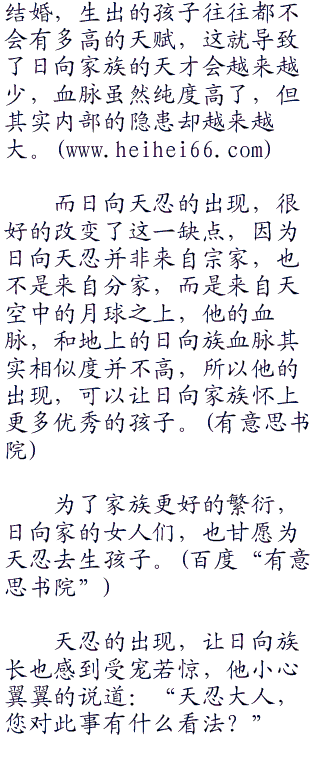 结婚，生出的孩子往往都不
会有多高的天赋，这就导致
了日向家族的天才会越来越
少，血脉虽然纯度高了，但
其实内部的隐患却越来越
大。(www.heihei66.com)
而日向天忍的出现，很
好的改变了这一缺点，因为
日向天忍并非来自宗家，也
不是来自分家，而是来自天
空中的月球之上，他的血
脉，和地上的日向族血脉其
实相似度并不高，所以他的
出现，可以让日向家族怀上
更多优秀的孩子。(有意思书
院)
为了家族更好的繁衍，
日向家的女人们，也甘愿为
天忍去生孩子。(百度“有意
思书院”)
天忍的出现，让日向族
长也感到受宠若惊，他小心
翼翼的说道：“天忍大人，
您对此事有什么看法？”